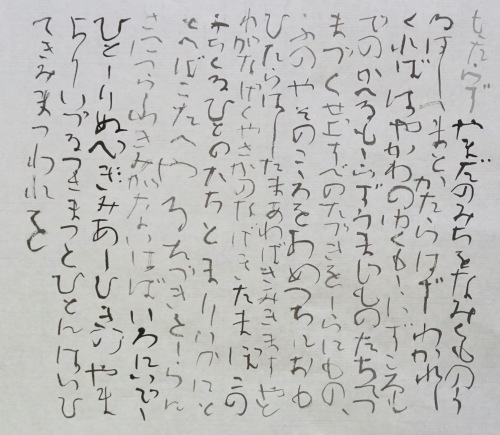 ももたらず やまだのみちをなみくものう
るはしづまと、かたらはずわかれし
くればはやかわのゆくもしらずころも
でのかへるもしらずうまじものたちてつ
まづくせむすべのたづきをしらにもの、
ふのやそのこころをあめつちにおも
ひたらはしたまあわばきみきますやと
わがなげくやさかのなげきたまほこの
みちくるひとのたちとまりいかにと
とへばこたへやるたづきをしらに
さにつらふきみがないはばいろにいで
ひとしりぬべみあしひきのやま
よりいづるつきまつとひとにはいひ
てきみまつわれを